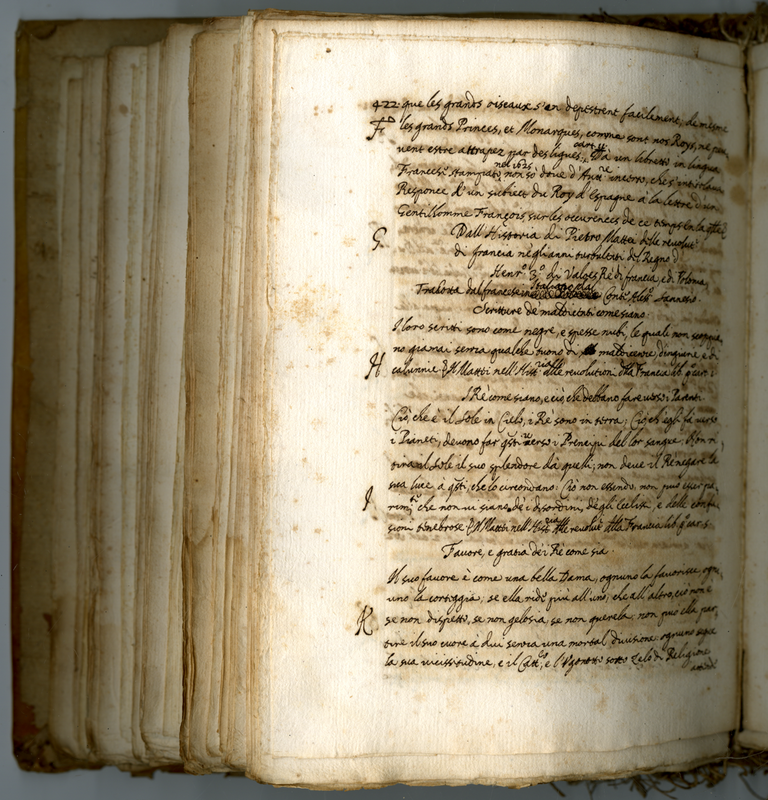 422. que les grands oiseaux s'en depestrent facilement, de mesme
F
les grands Princes, et Monarques, comme sont nos Roys, ne peu
vent estre attrapez par des ligues. Da un libretto in lingua
cart. 11.
Francese stampato, non so dove d'Aut.re incerto, che s'intitola
nel 1625
Responce d'un subiect du Roy d'Espagne à la lettre d'un
Gentilhomme François sur les occurences de ce temps
G.
Dall'Historia di Pietro Mattei delle revolut.
di francia negli anni turbulenti di Regno d'
Henr.o 3.o di Valoes Rè di francia, e di Polonia
Tradotta dal francese in Italiano dal Cont. Aless. Sannesio.
Scritture de maldicenti come siano.
I loro scritti sono come negre, e spesse nubi, le quali non scoppia
no giamai senza qualche tuono di maldicenze, d'ingiurie, e di
H
calunnie. P. Mattei nell'Hist. delle revolution. della Francia lib. q.
I Rè come siano, e ciò, che debbano fare verso i Parenti.
Ciò, che è il Sole in Cielo, i Rè sono in terra; Ciò, ch'egli fà verso
i Pianeti, devono far q.sti verso i Prencipi del lor sangue. Non ri
tira il Sole il suo splendore da quelli; non deve il Rè negare la
sua luce à q.sti, che lo circondano: Ciò non essendo, non può esser pa
I
rim.ti che non vi siano de i disordini, degli Eclissi, e delle confu
sioni tenebrose. P. Mattei nell'Hist. delle revolut. della Francia lib. q. car. 5.
Favore, e gratia de i Rè come sia.
Il suo favore è come una bella Dama, ognuno la favorisce, ogn
uno la corteggia; se ella ride più all'uno, che all'altro, ciò non è
K
se non dispetto, se non gelosia, se non querela; non può ella par
tire il suo cuore à dui senza una mortal divisione. ognuno segue
la sua vicissitudine, e il Catt.co, e l'Ugonotto sotto Zelo di Religione